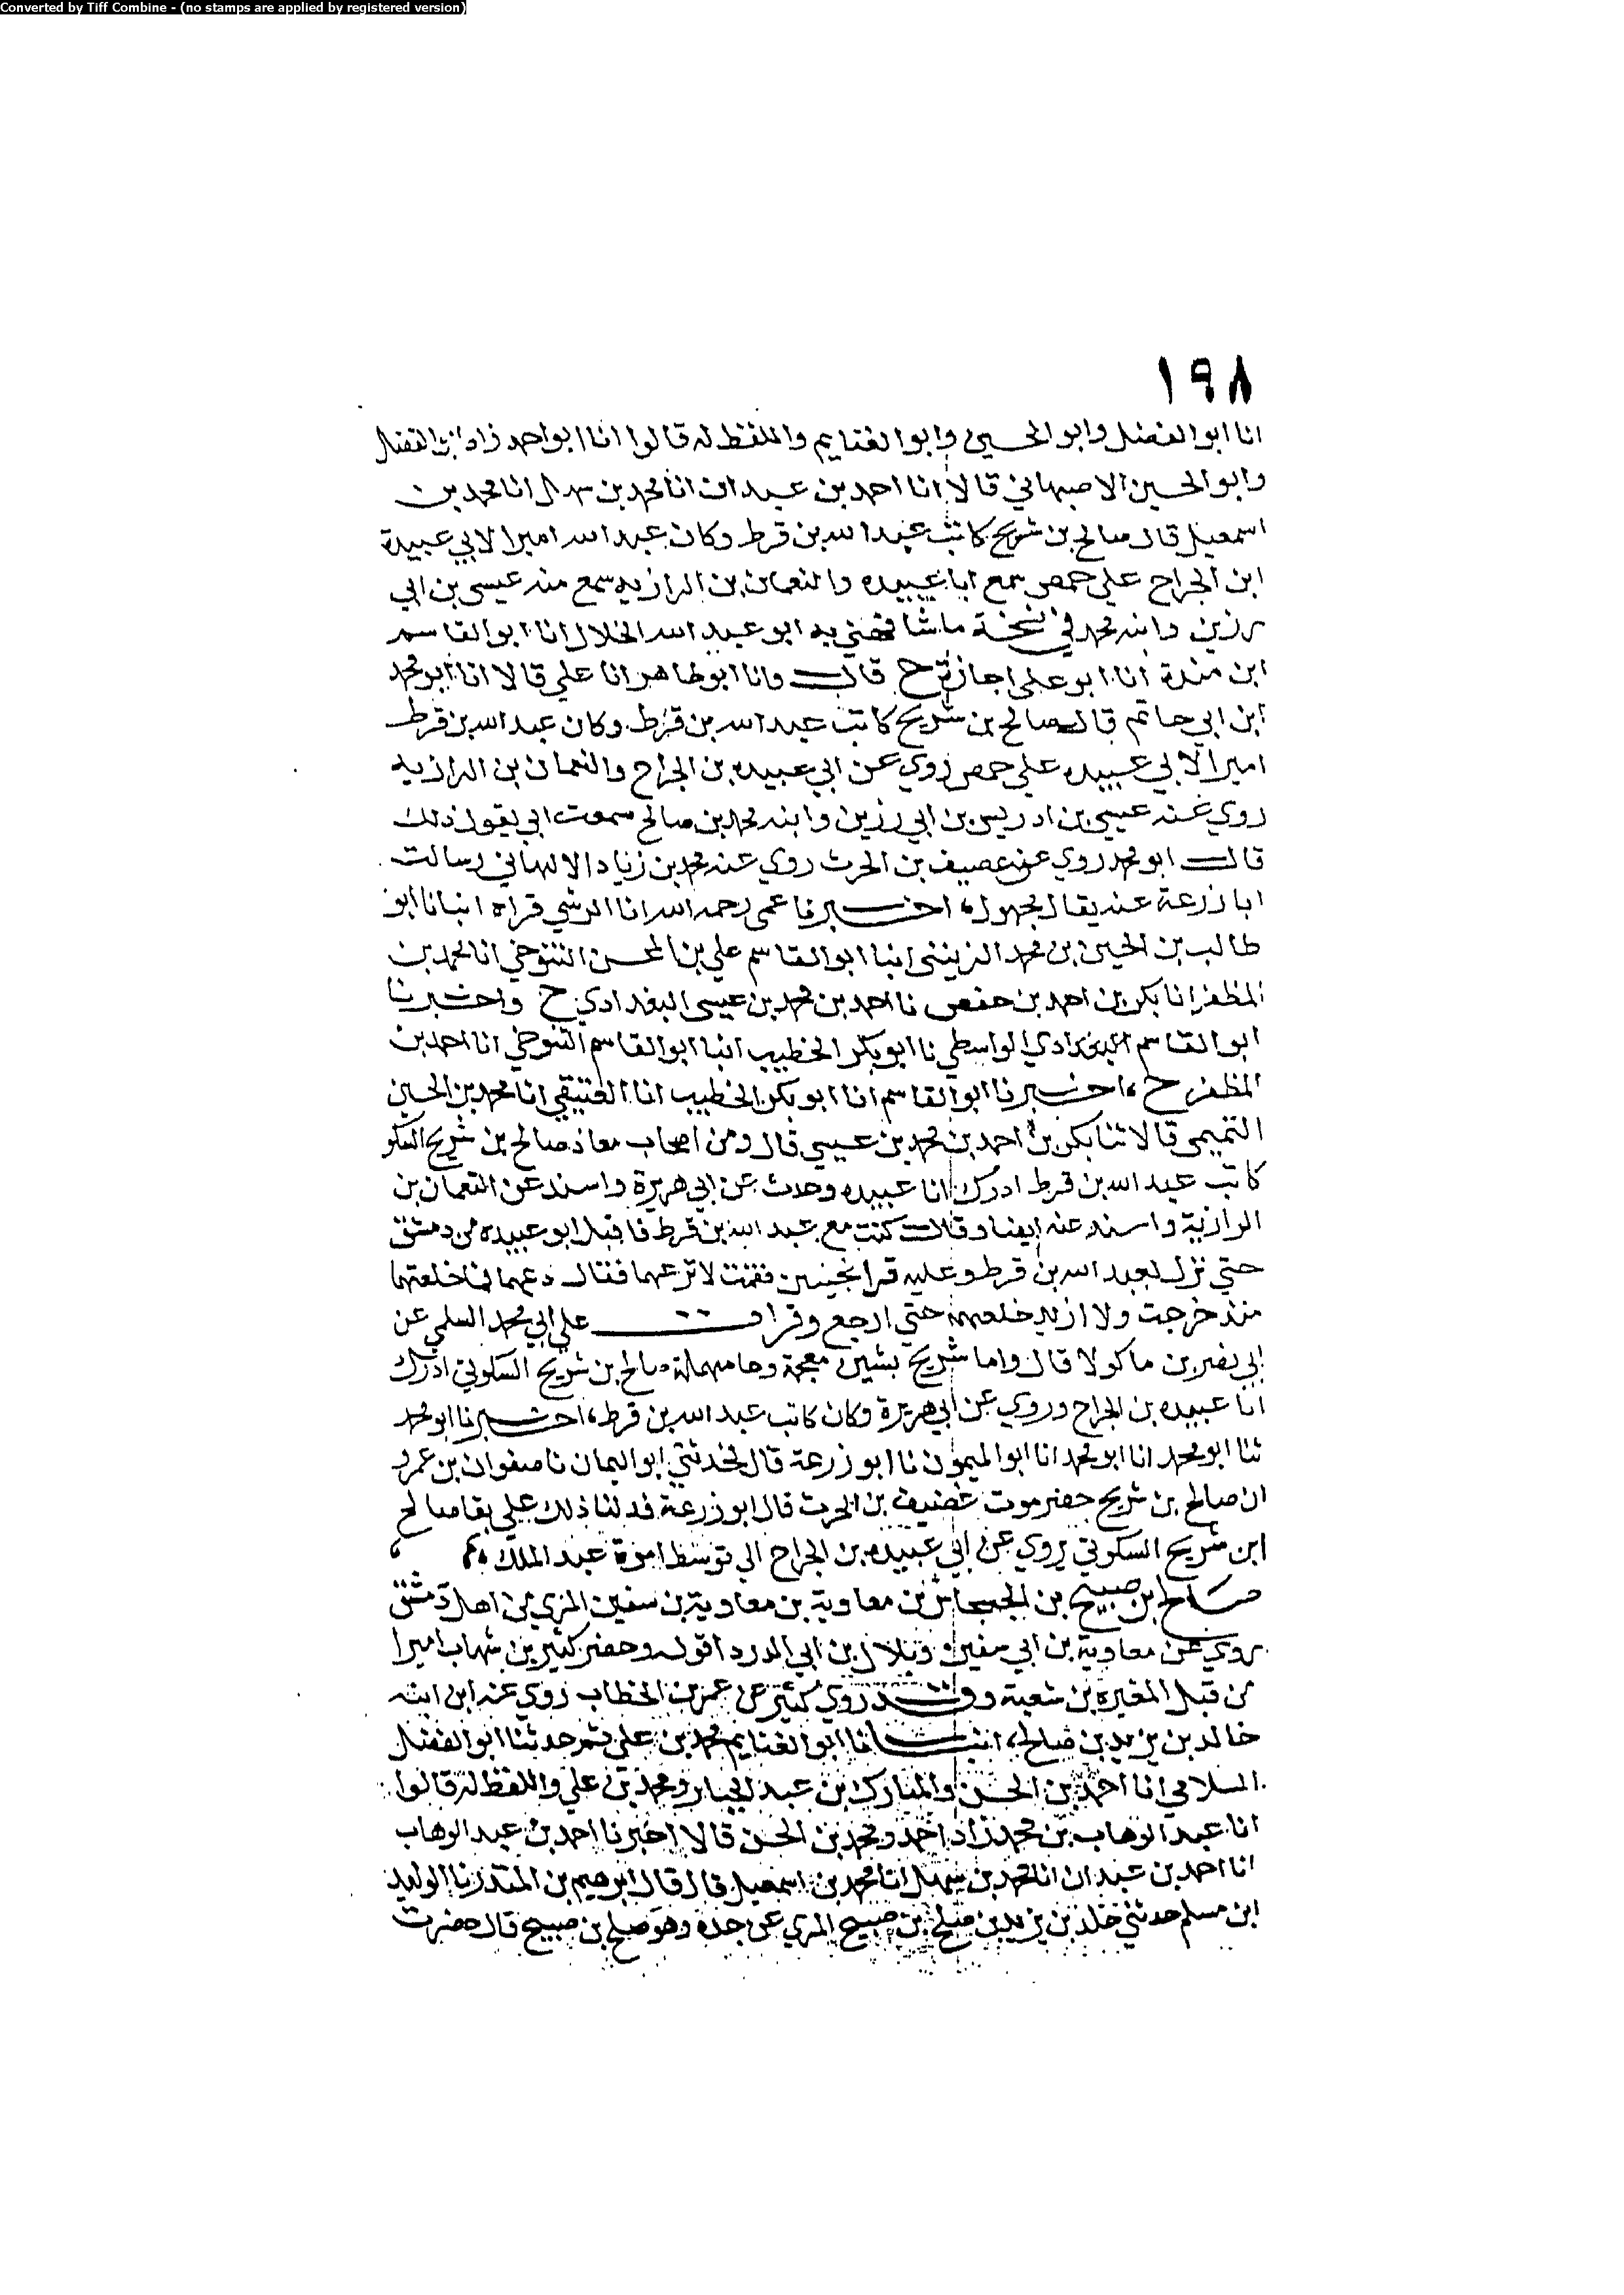 Converted by Tiff Combine - (no stamps are applied by registered version)
١٩٨
انا ابو الفضل وابو الحسين وابو الغنايم واللفظ له قالوا انا ابو احمد زاد ابو الفضل
وابو الحسين الاصبهاني قالا انا احمد بن عبدان انا محمد بن سهل انا محمد بن
اسمعيل قال صالح بن شريح كاتب عبد الله بن قرط وكان عبد الله اميرا لابي عبيدة
ابن الجراح علي حمص سمع ابا عبيده والنعمان بن الرازيه سمع منه عيسى بن ابي
رزين وابنه محمد في نسخة ما شافهني به ابو عبد الله الخلال انا ابو القاسم
ابن مندة انا ابو علي اجازة ح قال وانا ابو طاهر انا علي قالا انا ابو محمد
ابن ابي حاتم قال صالح بن شريح كاتب عبد الله بن قرط وكان عبد الله بن قرط
اميرا لابي عبيده علي حمص روي عن ابي عبيده بن الجراح والنعمان بن الرازيه
روي عنه عيسى بن ادريس بن ابي رزين وابنه محمد بن صالح سمعت ابي يقول ذلك
قال ابو محمد روي عن عصيف بن الحرث روي عنه محمد بن زياد الالهاني وسالت
ابا زرعة عنه يقال مجهول، اخبرنا عمى رحمه الله انا الرشي قراه انبانا ابو
طالب بن الحسين بن محمد الزينبى انبا ابو القاسم علي بن المحسن التنوخي انا محمد بن
المظفر انا بكر بن احمد بن حفص نا احمد بن محمد بن عيسى البغدادي ح واخبرنا
ابو القاسم البغدادي الواسطي نا ابو بكر الخطيب انبا ابو القاسم التنوخي انا احمد بن
المظفر ح، اخبرنا ابو القاسم انا ابو بكر الخطيب انا العتيقي انا محمد بن الحسين
التميمى قالا ثنا بكر بن احمد بن محمد بن عيسى قال ومن اصحاب معاذ صالح بن شريح السكو
كاتب عبد الله بن قرط ادرك انا عبيده وحدث عن ابي هريرة واسند عن النعمان بن
الرازية واسند عنه ايضا وقال كنت مع عبد الله بن قرط فاقبل ابو عبيده من دمشق
حتي نزل بعبد الله بن قرط وعليه قد فقمت لانزعهما فقال دعهما فما خلعتهما
منذ خرجت ولا اريد خلعهما حتي ارجع وقرات علي ابي محمد السلمي عن
ابي نصر بن ماكولا قال واما شريح بشين معجمة وحا مهملة صالح بن شريح السكوني ادرك
انا عبيده بن الجراح وروي عن ابي هريرة وكان كاتب عبد الله بن قرط، اخبرنا ابو محمد
ثنا ابو محمد انا ابو محمد انا ابو الميمون نا ابو زرعة قال فحدثني ابو اليمان نا صفوان بن عمرو
ان صالح بن شريح حضر موت غضيف بن الحرث قال ابو زرعة فدلنا ذلك علي بقا صالح
ابن شريح السكوني يروي عن ابي عبيده بن الجراح الي توسط امرة عبد الملك
صالح بن صبيح بن الحسحاس بن معاوية بن معاوية بن سفين المزي من اهل دمشق
روي عن معاوية بن ابي سفين وبلال بن ابي الدرداقوله وحضر كثير بن شهاب اميرا
من قبل المغيره بن شعبة وقد روي كثير عن عمر بن الخطاب روي عنه ابن ابنه
خالد بن يزيد بن صالح، انبانا ابو الغنايم محمد بن علي ثم حدثنا ابو الفضل
السلامي انا احمد بن الحسن والمبارك بن عبد الجبار ومحمد بن علي واللفظ له قالوا
انا عبد الوهاب بن محمد زاد احمد ومحمد بن الحسن قالا اخبرنا احمد بن عبد الوهاب
انا احمد بن عبدان انا محمد بن سهل انا محمد بن اسمعيل قال قال ابرهيم بن المنذر نا الوليد
ابن مسلم حدثني خلد بن يزيد بن صلح بن صبيح المري عن جده وهو صلح بن صبيح قال حضرت